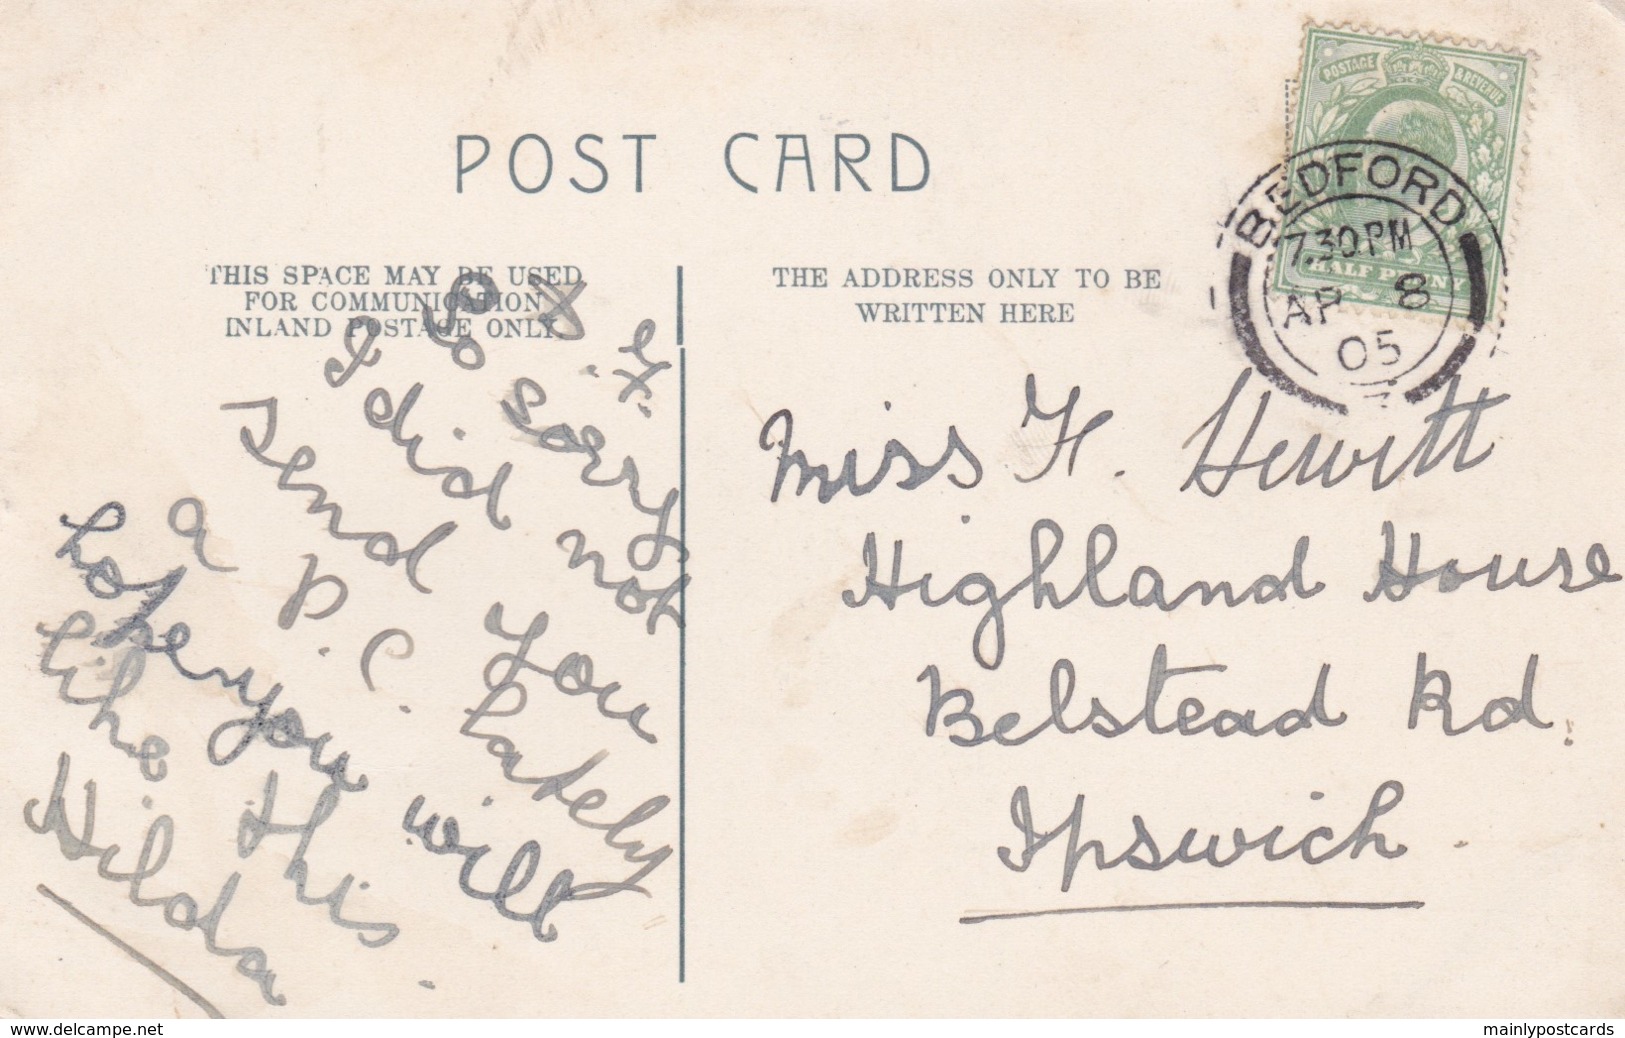 POST CARD
THIS SPACE MAY BE USED
FOR COMMUNICATION
INLAND POSTAGE ONLY
THE ADDRESS ONLY TO BE
WRITTEN HERE
POSTAGE & REVENUE
HALF PENNY
BEDFORD
7.30 PM
AP 8
05
So sorry
I did not
send you
a P.C. lately
hope you will
like this.
Hilda
Miss H. Hewitt
Highland House
Belstead Rd.
Ipswich.
www.delcampe.net
mainlypostcards